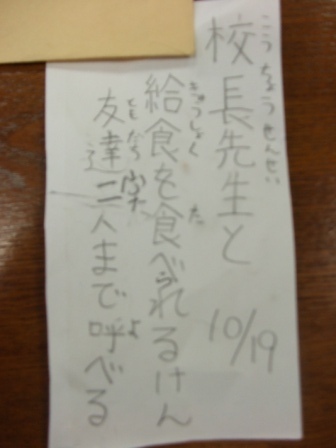 こうちょうせんせい
校長先生と
10/19
きゅうしょく　た
給食を食べられるけん
ともだち　よ
友達二人まで呼べる